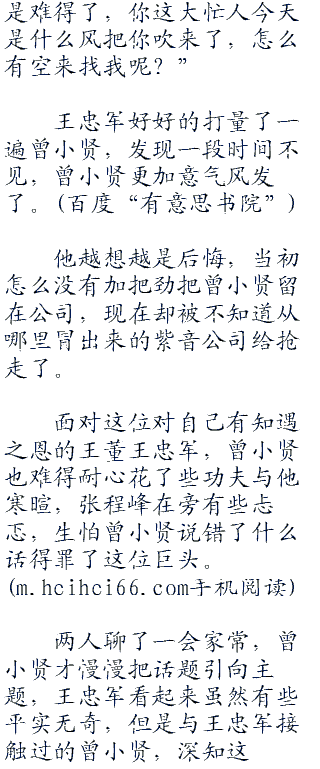 是难得了，你这大忙人今天
是什么风把你吹来了，怎么
有空来找我呢？”
王忠军好好的打量了一
遍曾小贤，发现一段时间不
见，曾小贤更加意气风发
了。(百度“有意思书院”)
他越想越是后悔，当初
怎么没有加把劲把曾小贤留
在公司，现在却被不知道从
哪里冒出来的紫音公司给抢
走了。
面对这位对自己有知遇
之恩的王董王忠军，曾小贤
也难得耐心花了些功夫与他
寒暄，张程峰在旁有些忐
忑，生怕曾小贤说错了什么
话得罪了这位巨头。
(m.hcihci66.com手机阅读)
两人聊了一会家常，曾
小贤才慢慢把话题引向主
题，王忠军看起来虽然有些
平实无奇，但是与王忠军接
触过的曾小贤，深知这